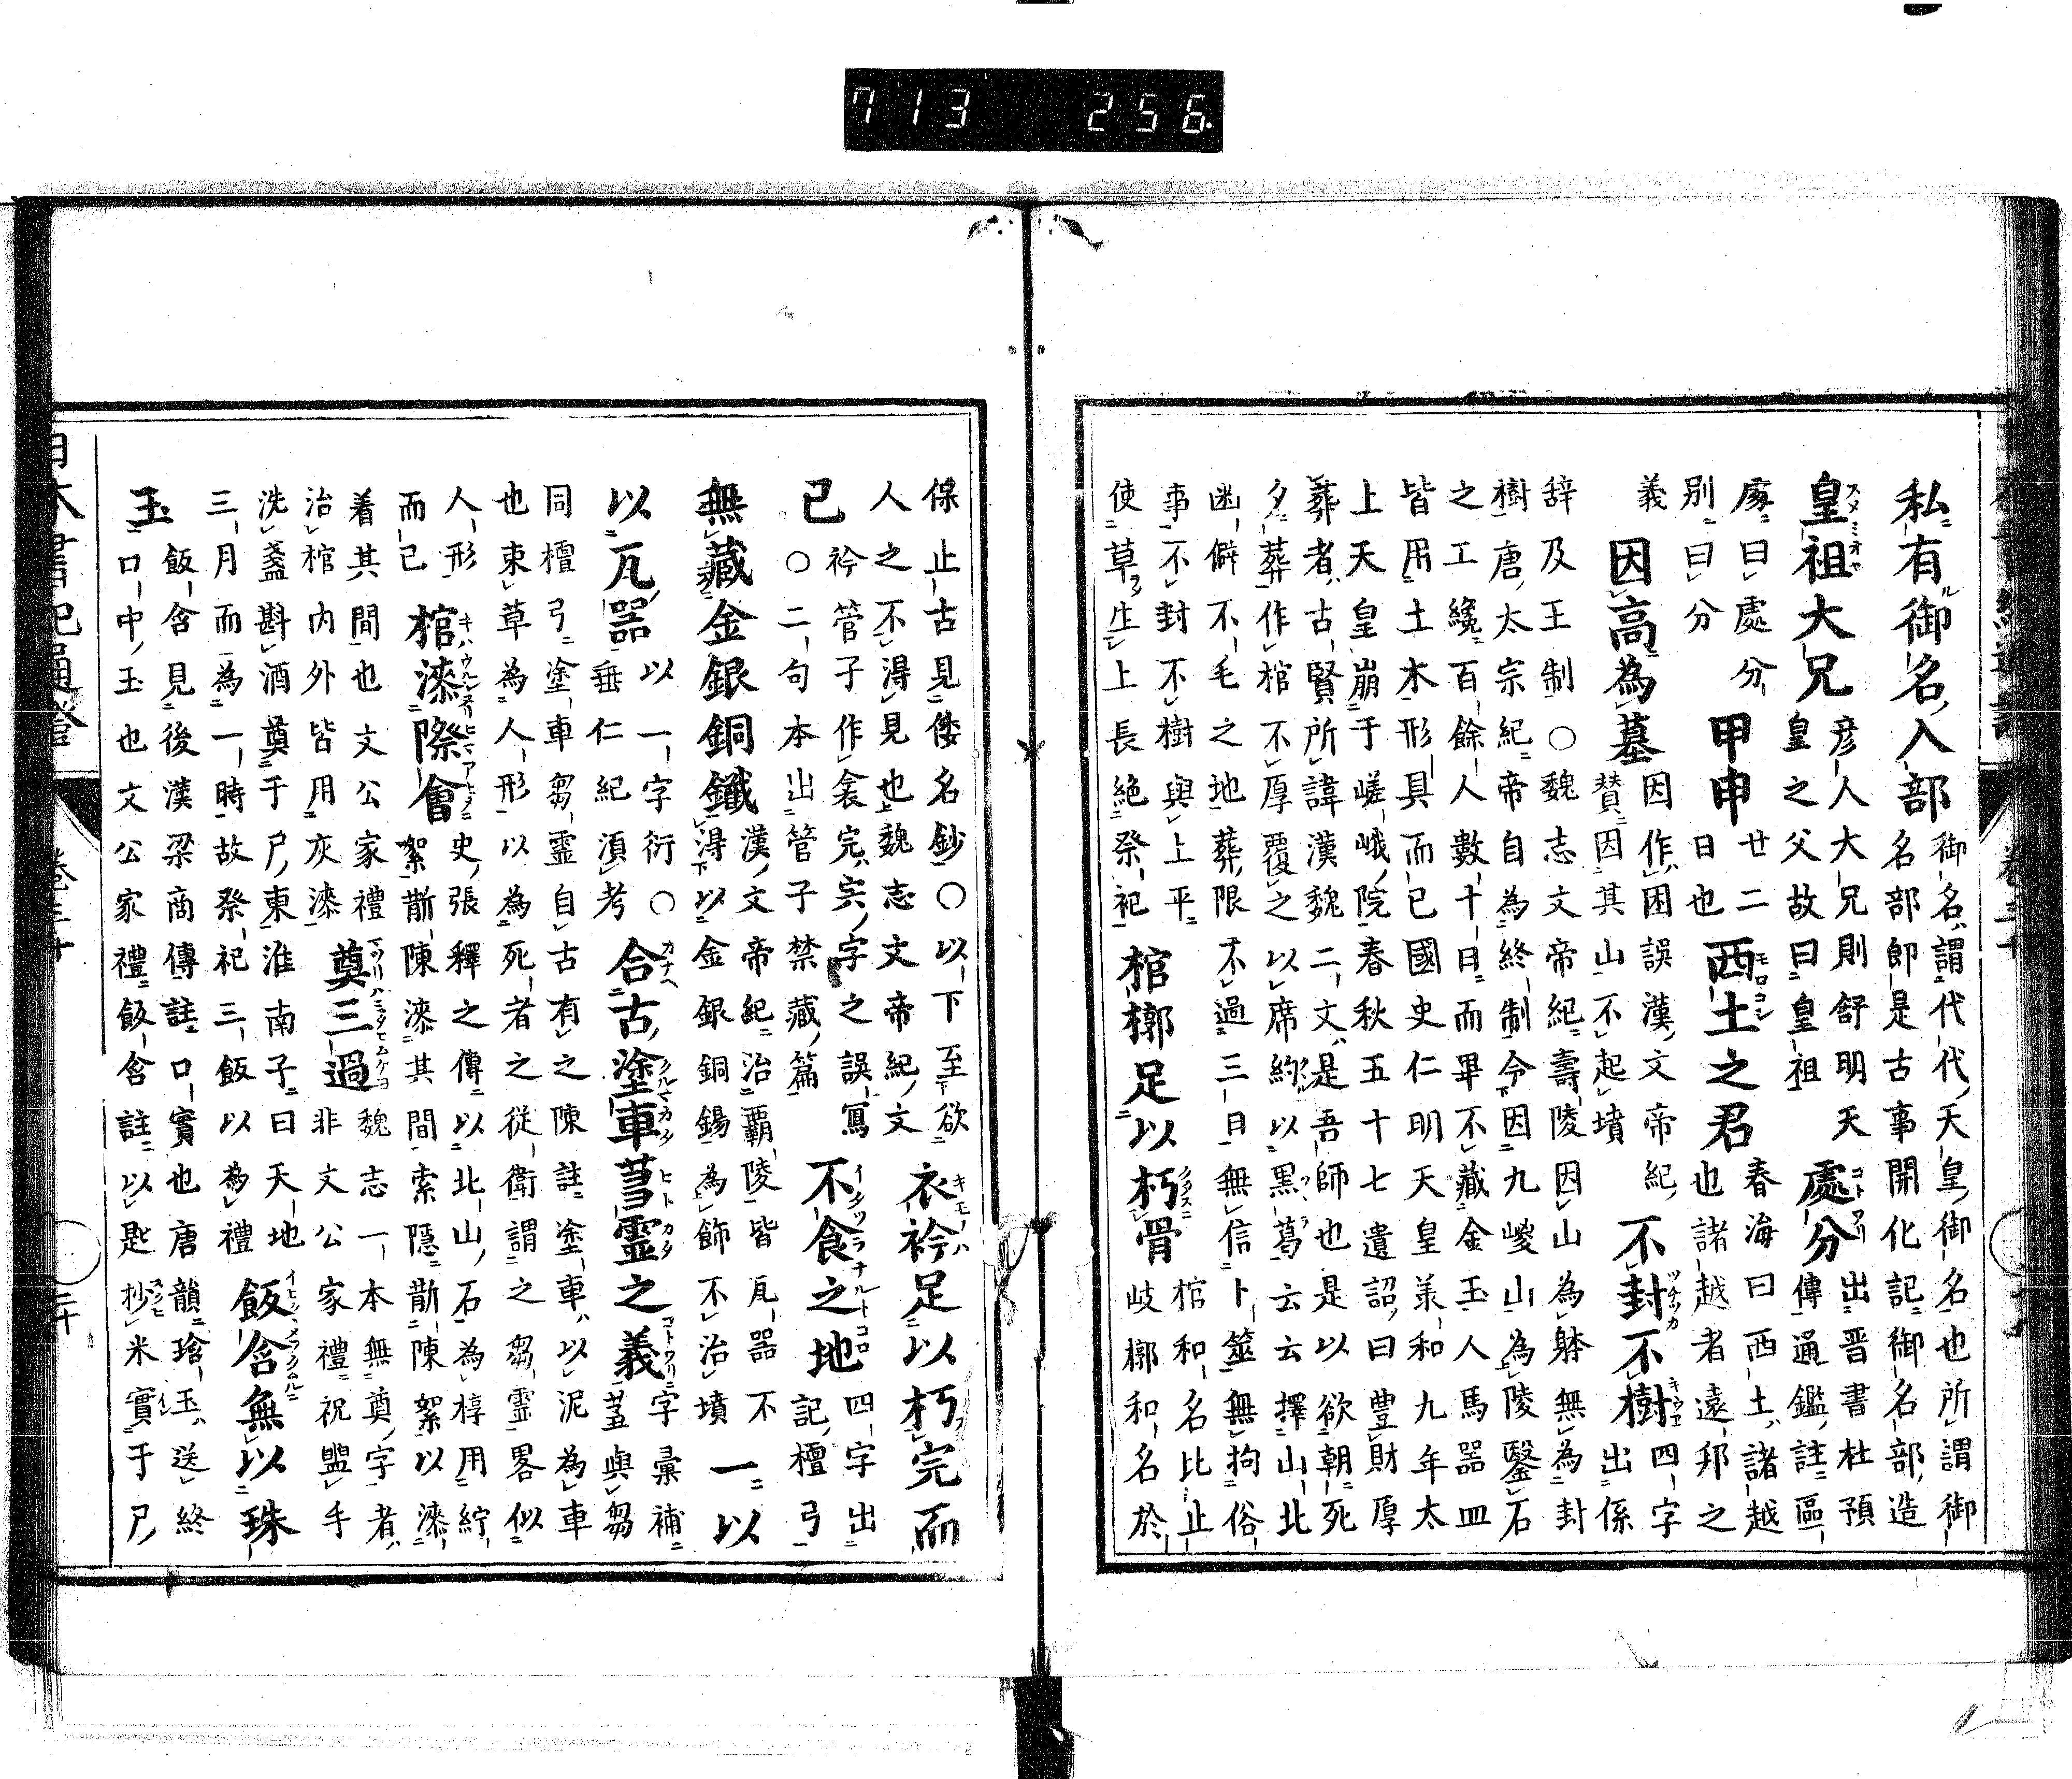 私有御名入部
御名謂代代天皇御名也所謂御
名部即是古事開化記御名部造
皇祖大兄
彦人大兄則舒明天
皇之父故曰皇祖
處分
出晋書杜預
傳通鑑註區
處曰處分
別曰分
甲申
廿二
日也
西土之君
春海曰西土諸越
也諸越者遠邦之
義
因高為墓
因作因誤漢文帝紀
賛因其山不起墳
不封不樹
四字
出係
辞及王制〇魏志文帝紀壽陵因山為躰無為封
樹唐太宗紀帝自為終制今因九嵕山為陵鑿石
之工纔百餘人數十日而畢不藏金玉人馬器皿
皆用土木形具而已國史仁明天皇羕和九年太
上天皇崩于嵯峨院春秋五十七遺詔曰豊財厚
葬者古賢所諱漢魏二文是吾師也是以欲朝死
夕葬作棺不厚覆之以席約以黒葛云云擇山北
幽僻不毛之地葬限不過三日無信卜筮無拘俗
事不封不樹與上平
使草生上長絶祭祀
棺槨足以朽骨
棺和名比止
岐槨和名於
保止古見倭名鈔〇以下至欲
人之不得見也魏志文帝紀文
衣衿足以朽完而
已
衿管子作衾完宍字之誤寫
〇二句本出管子禁藏篇
不食之地
四字出
記檀弓
無藏金銀銅鐵
漢文帝紀治覇陵皆瓦器不
得以金銀銅錫為飾不治墳
一以
以瓦器
以一字衍〇
垂仁紀湏考
合古塗車蒭霊之義
字彙補
與芻
同檀弓塗車芻霊自古有之陳註塗車以泥為車
也束草為人形以為死者之従衛謂之芻霊畧似
人形
而已
棺漆際會
史張釋之傳以北山石為椁用紵
絮斮陳漆其間索隠斮陳絮以漆
着其間也文公家禮
治棺内外皆用灰漆
奠三過
魏志一本無奠字者
非文公家禮祝盥手
洗盞斟酒奠于尸東淮南子曰天地
三月而為一時故祭祀三飯以為禮
飯含無以珠
玉
飯含見後漢梁商傳註口實也唐韻琀玉送終
口中玉也文公家禮飯含註以匙抄米實于尸
日本書紀通證
713 256